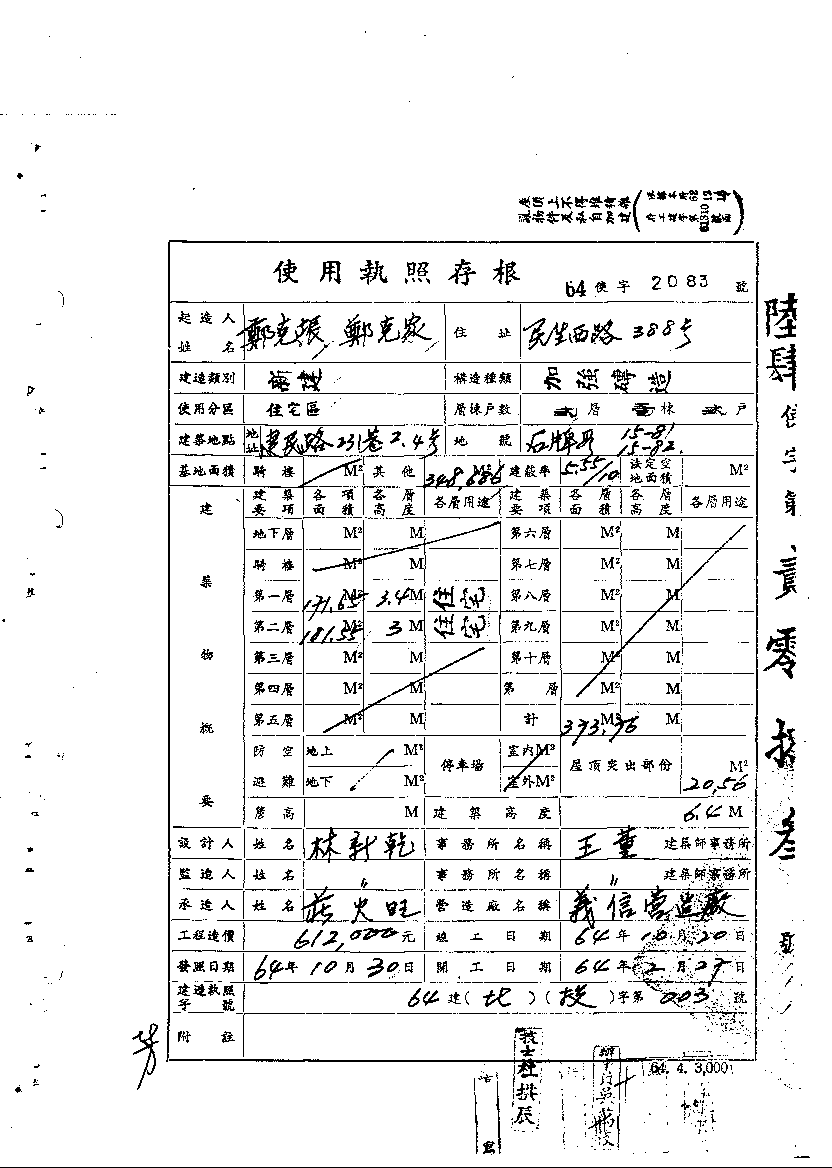 屋頂上不得堆積雜
物件及私自加建
使用執照存根
64 使字 2083 號
起造人姓名 鄭克張, 鄭克家 住址 民生西路388号
建造類別 新建 構造種類 加強磚造
使用分區 住宅區 層棟戶數 層 棟 戶
建築地點 地址 路231巷2.4号 地號 石牌段 15-81 15-82
基地面積 騎樓 M² 其他 348.686 M² 建蔽率 5.55/10 法定空地面積 M²
建築物概要 建築要項 各項面積 各層高度 各層用途 建築要項 各層面積 各層高度 各層用途
地下層 M² M 第六層 M² M
騎樓 M² M 第七層 M² M
第一層 171.65 M² 3.4 M 住宅 第八層 M² M
第二層 181.55 M² 3 M 住宅 第九層 M² M
第三層 M² M 第十層 M² M
第四層 M² M 第 層 M² M
第五層 M² M 計 373.76 M² M
防空避難 地上 M² 停車場 室內M² 屋頂突出部份 M²
地下 M² 室外M² 20.56
簷高 M 建築高度 6.4 M
設計人 姓名 林新乾 事務所名稱 王董 建築師事務所
監造人 姓名 〃 事務所名稱 〃 建築師事務所
承造人 姓名 莊火旺 營造廠名稱 義信營造廠
工程造價 612,000元 竣工日期 64年10月20日
發照日期 64年10月30日 開工日期 64年2月27日
建造執照字號 64建(北)(投)字第003號
附註
64. 4. 3,000
陸肆使字第貳零捌叁號
技士 杜拱辰